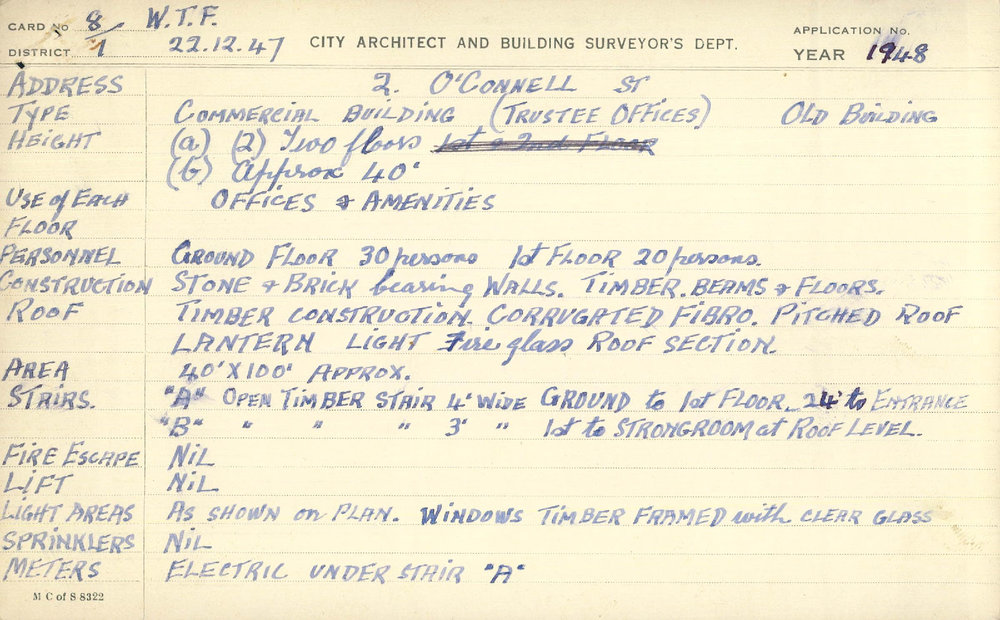 CARD No 8 W.T.F. APPLICATION No.
DISTRICT 1 22.12.47 CITY ARCHITECT AND BUILDING SURVEYOR'S DEPT. YEAR 1948
ADDRESS 2. O'CONNELL ST
TYPE COMMERCIAL BUILDING (TRUSTEE OFFICES) OLD BUILDING
HEIGHT (a) (2) Two floors 1st & 2nd FLOOR
(b) Approx 40'
USE of EACH OFFICES & AMENITIES
FLOOR
PERSONNEL GROUND FLOOR 30 persons 1st FLOOR 20 persons.
CONSTRUCTION STONE & BRICK bearing WALLS. TIMBER. BEAMS & FLOORS.
ROOF TIMBER CONSTRUCTION. CORRUGATED FIBRO. PITCHED ROOF
LANTERN LIGHT Fire glass ROOF SECTION.
AREA 40' X 100' APPROX.
STAIRS. "A" OPEN TIMBER STAIR 4' WIDE GROUND to 1st FLOOR 24' to ENTRANCE
"B" " " " 3' " 1st to STRONGROOM at ROOF LEVEL.
FIRE ESCAPE NIL
LIFT NIL
LIGHT AREAS AS SHOWN on PLAN. WINDOWS TIMBER FRAMED with CLEAR GLASS
SPRINKLERS NIL
METERS ELECTRIC UNDER STAIR "A"
M C of S 8322